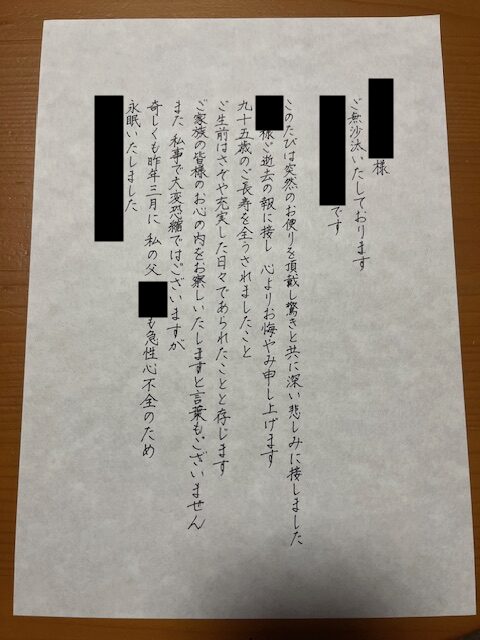 様
ご無沙汰いたしております
です
このたびは突然のお便りを頂戴し驚きと共に深い悲しみに接しました
様ご逝去の報に接し 心よりお悔やみ申し上げます
九十五歳のご長寿を全うされましたこと
ご生前はさぞや充実した日々であられたことと存じます
ご家族の皆様のお心の内をお察しいたしますと言葉もございません
また 私事で大変恐縮ではございますが
奇しくも昨年三月に 私の父 も急性心不全のため
永眠いたしました